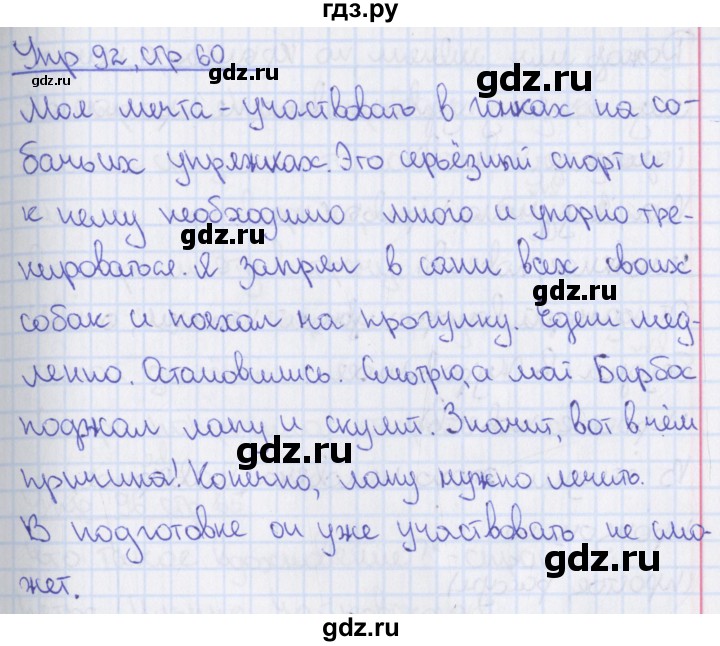 гдз.ру
Упр 92, стр 60
gdz.ru
gdz.ru
Моя мечта - участвовать в гонках на со-
бачьих упряжках. Это серьёзный спорт и
к нему необходимо много и упорно тре-
gdz.ru
нироваться. Я запряг в сани всех своих
gdz.ru
собак и поехал на прогулку. Едем мед-
ленно. Остановились. Смотрю, а мой Барбос
gdz.ru
поджал лапу и скулит. Значит, вот в чём
gdz.ru
причина! Конечно, лапу нужно лечить.
В подготовке он уже участвовать не смо-
gdz.ru
жет.
gdz.ru